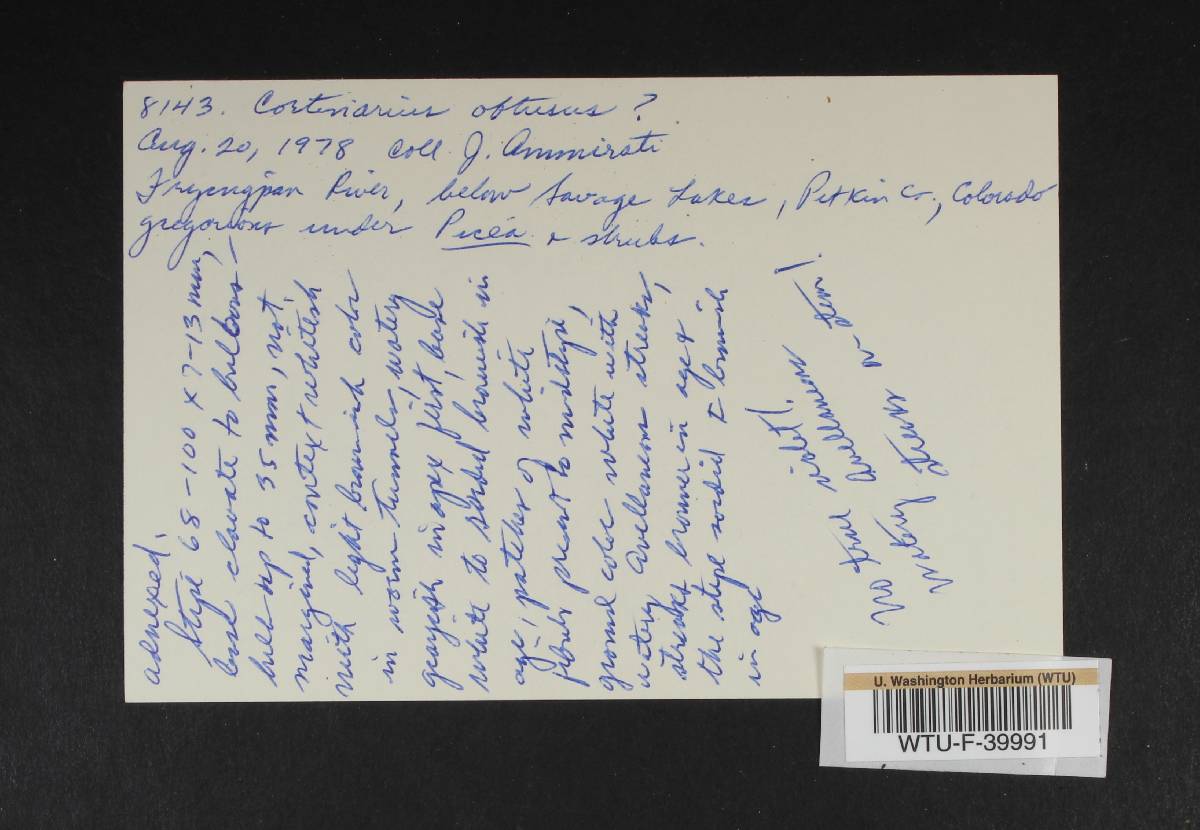 8143. Cortinarius obtusus ?
Aug. 20, 1978 coll J. Ammirati
Fryengpan River, below Savage Lakes, Pitkin Co., Colorado
gregarious under Picea & shrubs.
adnexed.
Stipe 68-100 x 7-13 mm,
base clavate to bulbous-
bulb up to 35 mm, not
margined, context whitish
with light brownish color
in worm tunnels, watery
grayish in apex first, base
white to sordid brownish in
age, patches of white
fibrils present to midstipe,
ground color white with
watery avellaneous streaks,
streaks browner in age &
the stipe sordid ± brownish
in age
No true violet!.
avellaneous
watery streaks on stem!
U. Washington Herbarium (WTU)
WTU-F-39991